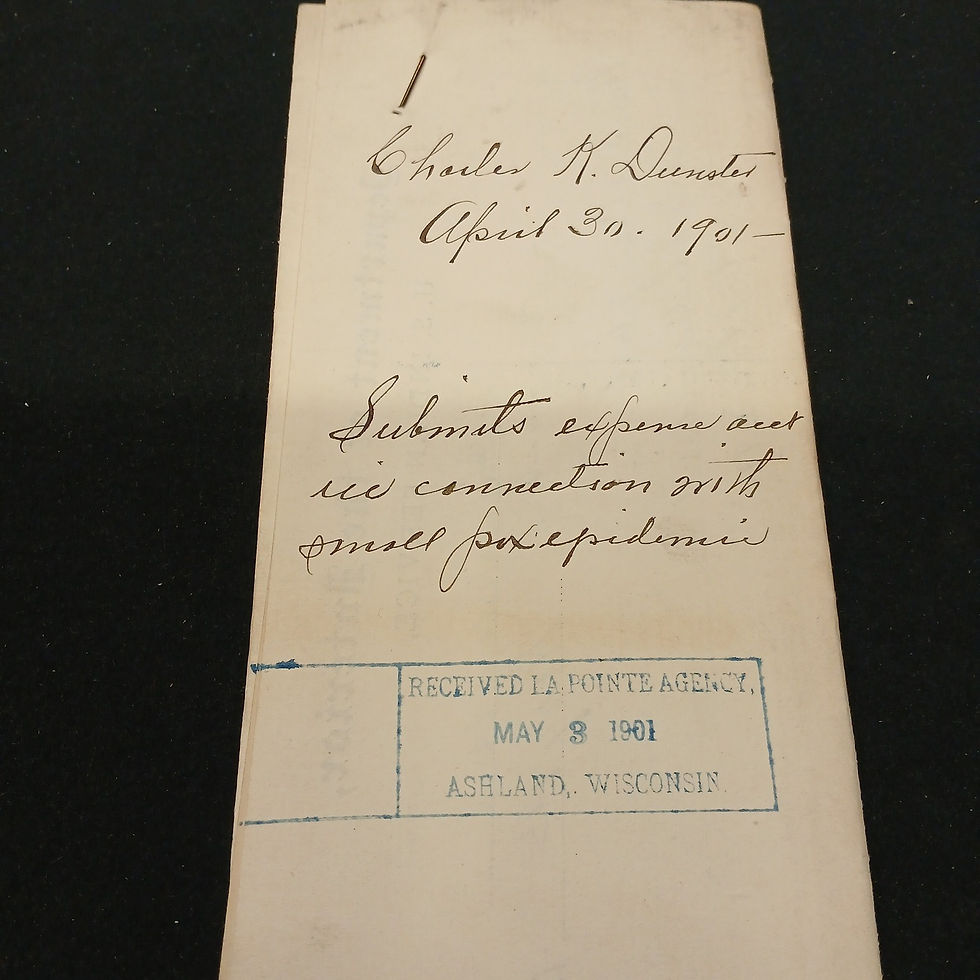 Charles K. Dunster
April 30. 1901—
Submits expense acct
in connection with
small pox epidemic
RECEIVED LA POINTE AGENCY,
MAY 3 1901
ASHLAND, WISCONSIN.